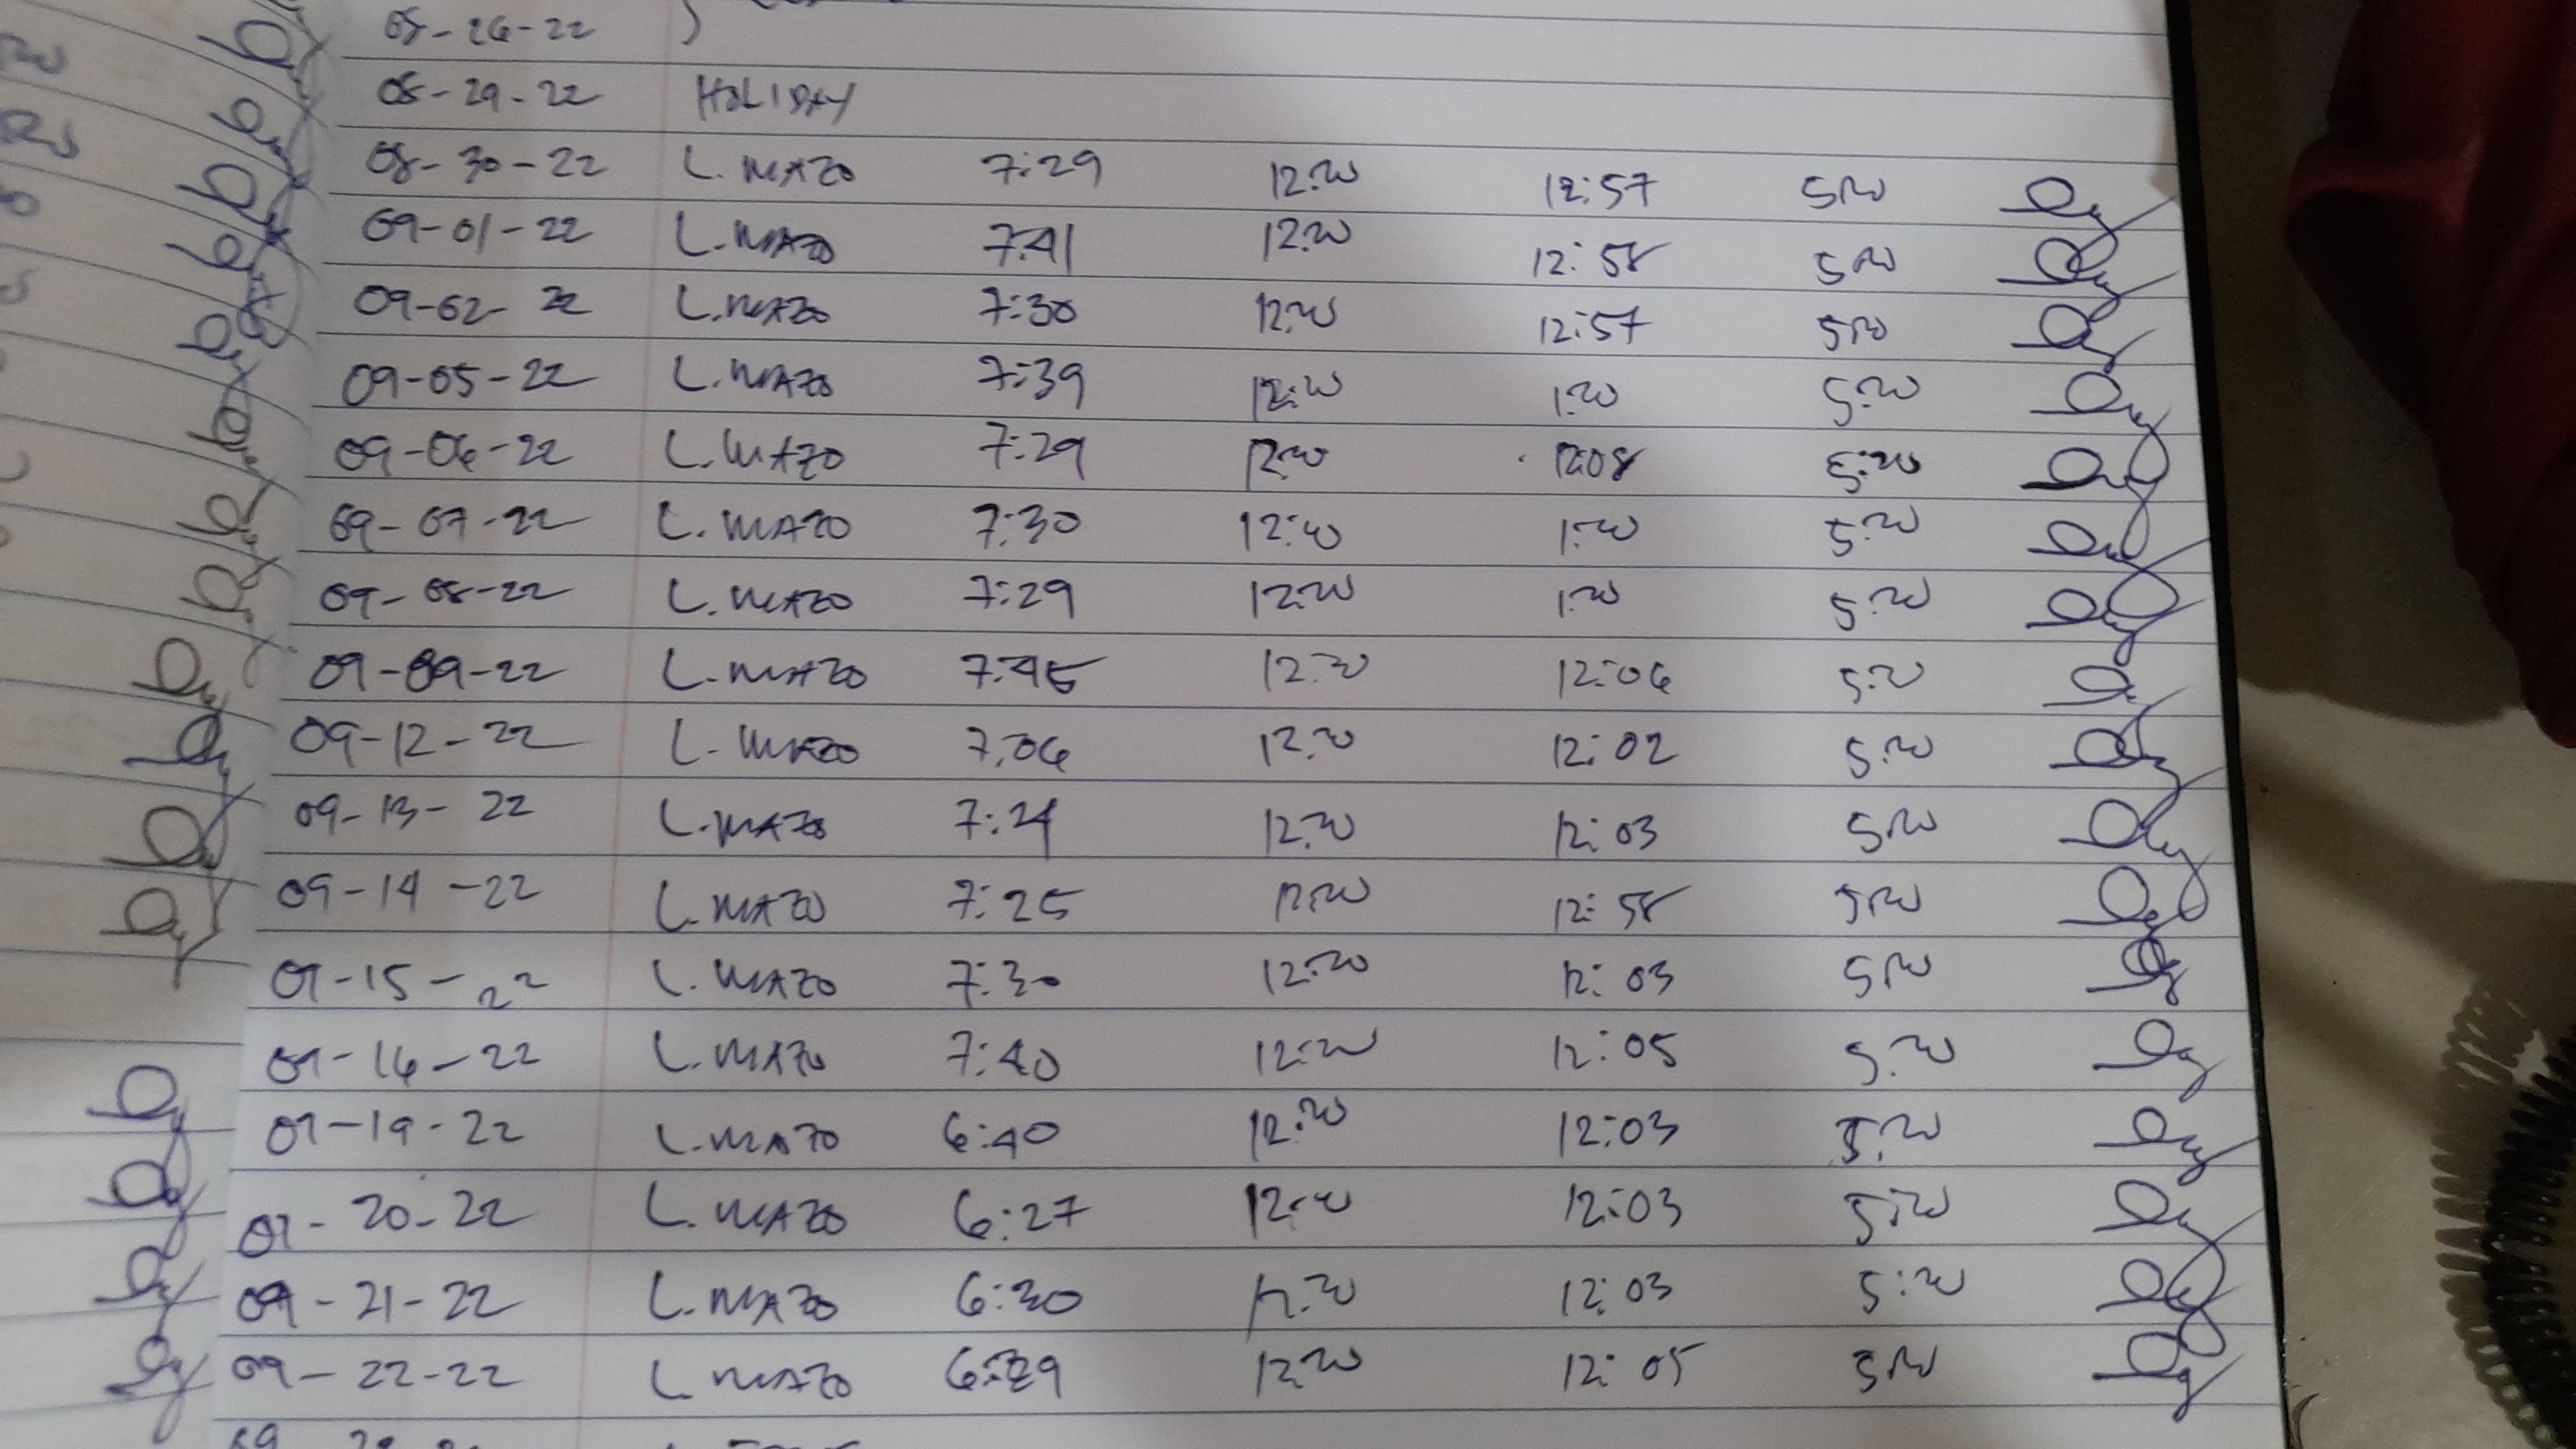 08-26-22
08-29-22 HOLIDAY
08-30-22 L. MAZO 7:29 12:00 12:57 5:00
09-01-22 L. MAZO 7:41 12:00 12:58 5:00
09-02-22 L. MAZO 7:30 12:00 12:57 5:00
09-05-22 L. MAZO 7:39 12:00 1:00 5:00
09-06-22 L. MAZO 7:29 12:00 12:08 5:00
09-07-22 L. MAZO 7:30 12:00 1:00 5:00
09-08-22 L. MAZO 7:29 12:00 1:00 5:00
09-09-22 L. MAZO 7:45 12:00 12:06 5:00
09-12-22 L. MAZO 7:06 12:00 12:02 5:00
09-13-22 L. MAZO 7:24 12:00 12:03 5:00
09-14-22 L. MAZO 7:25 12:00 12:58 5:00
09-15-22 L. MAZO 7:30 12:00 12:03 5:00
09-16-22 L. MAZO 7:40 12:00 12:05 5:00
09-19-22 L. MAZO 6:40 12:00 12:03 5:00
09-20-22 L. MAZO 6:27 12:00 12:03 5:00
09-21-22 L. MAZO 6:30 12:00 12:03 5:00
09-22-22 L. MAZO 6:29 12:00 12:05 5:00